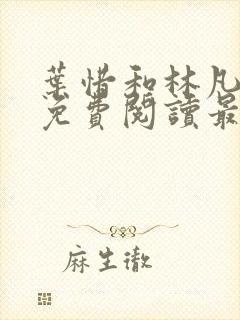 葉惜和林凡
免費閱讀最
麻生徹